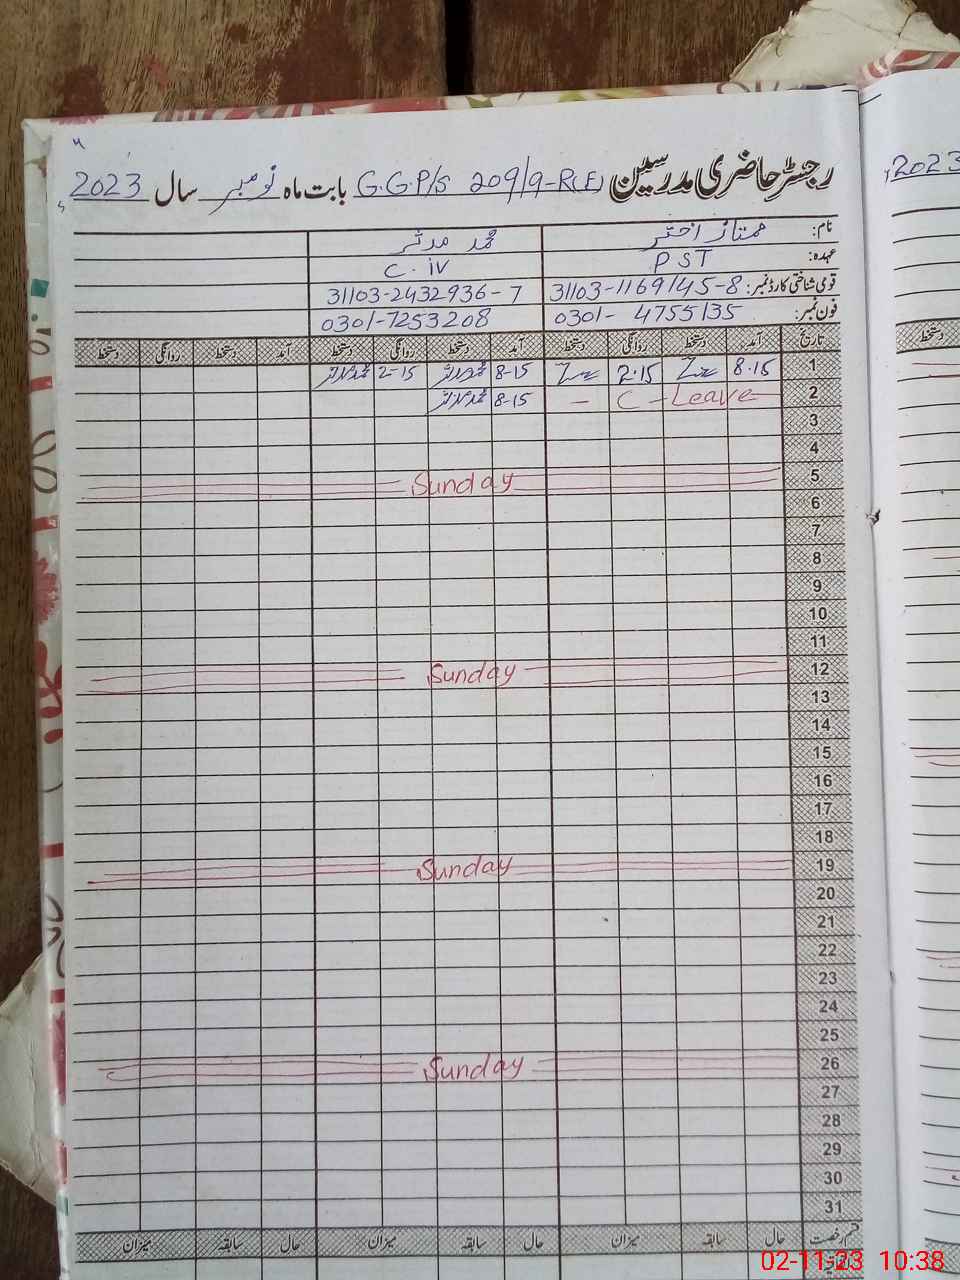 رجسٹر حاضری مدرسین G.G.P/S 209/9-R(E) بابت ماہ نومبر سال 2023
2023
نام: ممتاز اختر محمد مدثر
عہدہ: PST C.iv
قومی شناختی کارڈ نمبر: 31103-1169145-8 31103-2432936-7
فون نمبر: 0301-4755135 0301-7253208
تاریخ آمد دستخط روانگی دستخط آمد دستخط روانگی دستخط آمد دستخط روانگی دستخط دستخط
1 8.15 2.15 8-15 محمد مدثر 2-15 محمد مدثر
2 - C - Leave 8-15 محمد مدثر
3
4
5 Sunday
6
7
8
9
10
11
12 Sunday
13
14
15
16
17
18
19 Sunday
20
21
22
23
24
25
26 Sunday
27
28
29
30
31
قسم رخصت حال سابقہ میزان حال سابقہ میزان حال سابقہ میزان
02-11-23 10:38